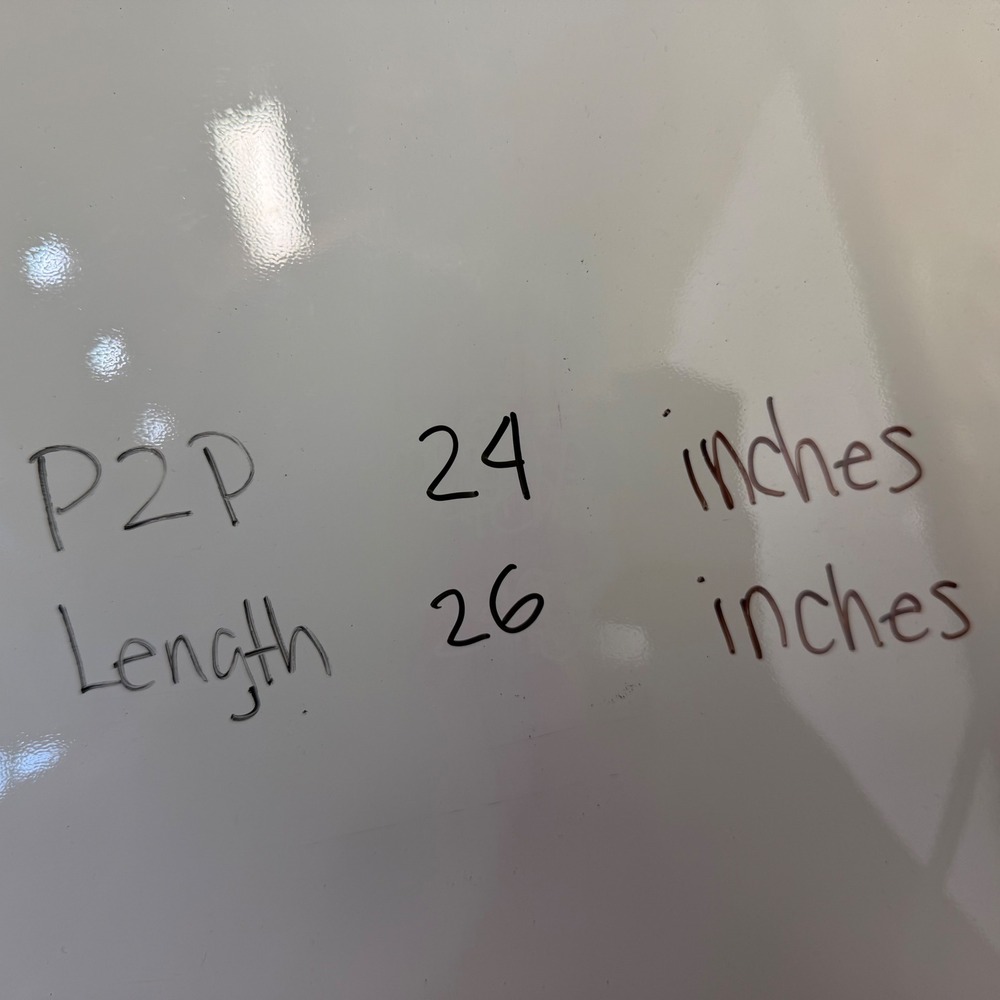 P2P 24 inches
Length 26 inches